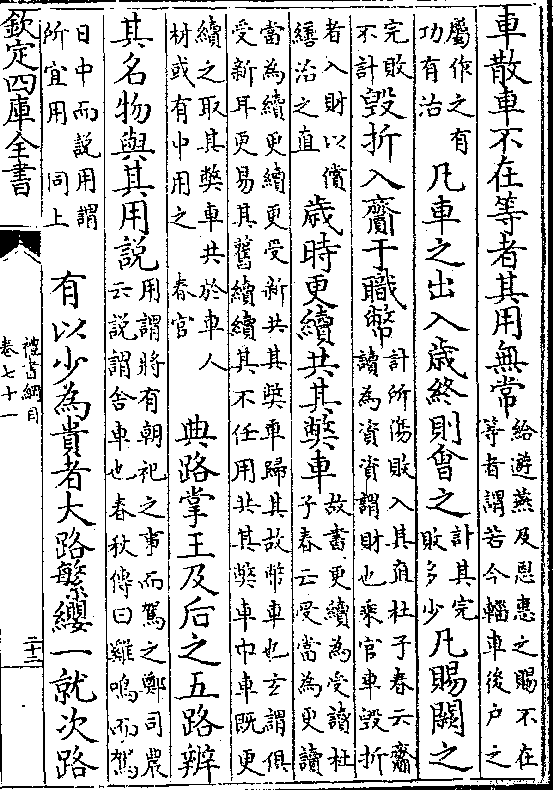 車散車不在等者其用無常給遊燕及恩惠之賜不在
等者謂若今輜車後户之
屬作之有
功有治
凡車之出入歲終則會之計其完
敗多少
凡賜闕之
完敗
不計
毀折入齎于職幣計所傷敗入其直杜子春云齎
讀為資資謂財也乘官車毀折
者入財以償
繕治之直
歲時更續共其獘車故書更續為受讀杜
子春云受當為更讀
當為續更續更受新共其獘車歸其故幣車也玄謂俱
受新耳更易其舊續續其不任用共其獘車巾車既更
續之取其獘車共於車人
材或有中用之 春官
典路掌王及后之五路辨
其名物與其用説用謂將有朝祀之事而駕之鄭司農
云説謂舍車也春秋傳曰雞鳴而駕
日中而説用謂
所宜用 同上
有以少為貴者大路繁纓一就次路
欽定四庫全書
禮書綱目
卷七十一
二十三